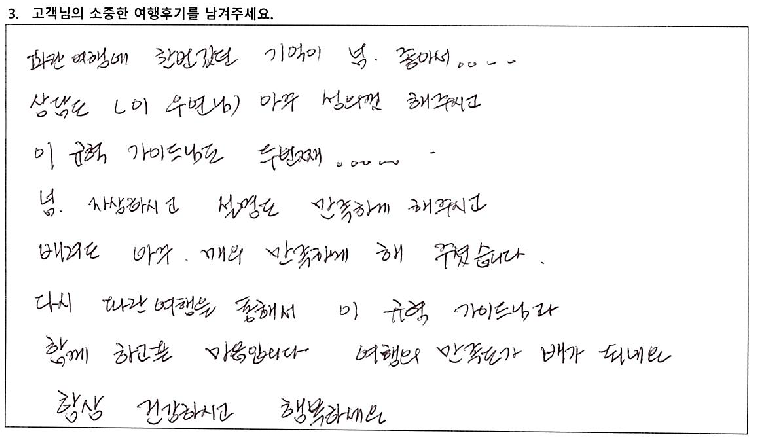 3. 고객님의 소중한 여행후기를 남겨주세요.
파란여행에 한번갔던 기억이 넘. 좋아서....
상담도 (이 우연님) 아주 성의껏 해주시고
이 균혁 가이드님도 두번째.....
넘. 자상하시고 설명도 만족하게 해주시고
배려도 아주. 매우 만족하게 해 주셨습니다.
다시 파란여행을 통해서 이 균혁 가이드님과
함께 하고픈 마음입니다 여행의 만족도가 배가 되네요
항상 건강하시고 행복하세요